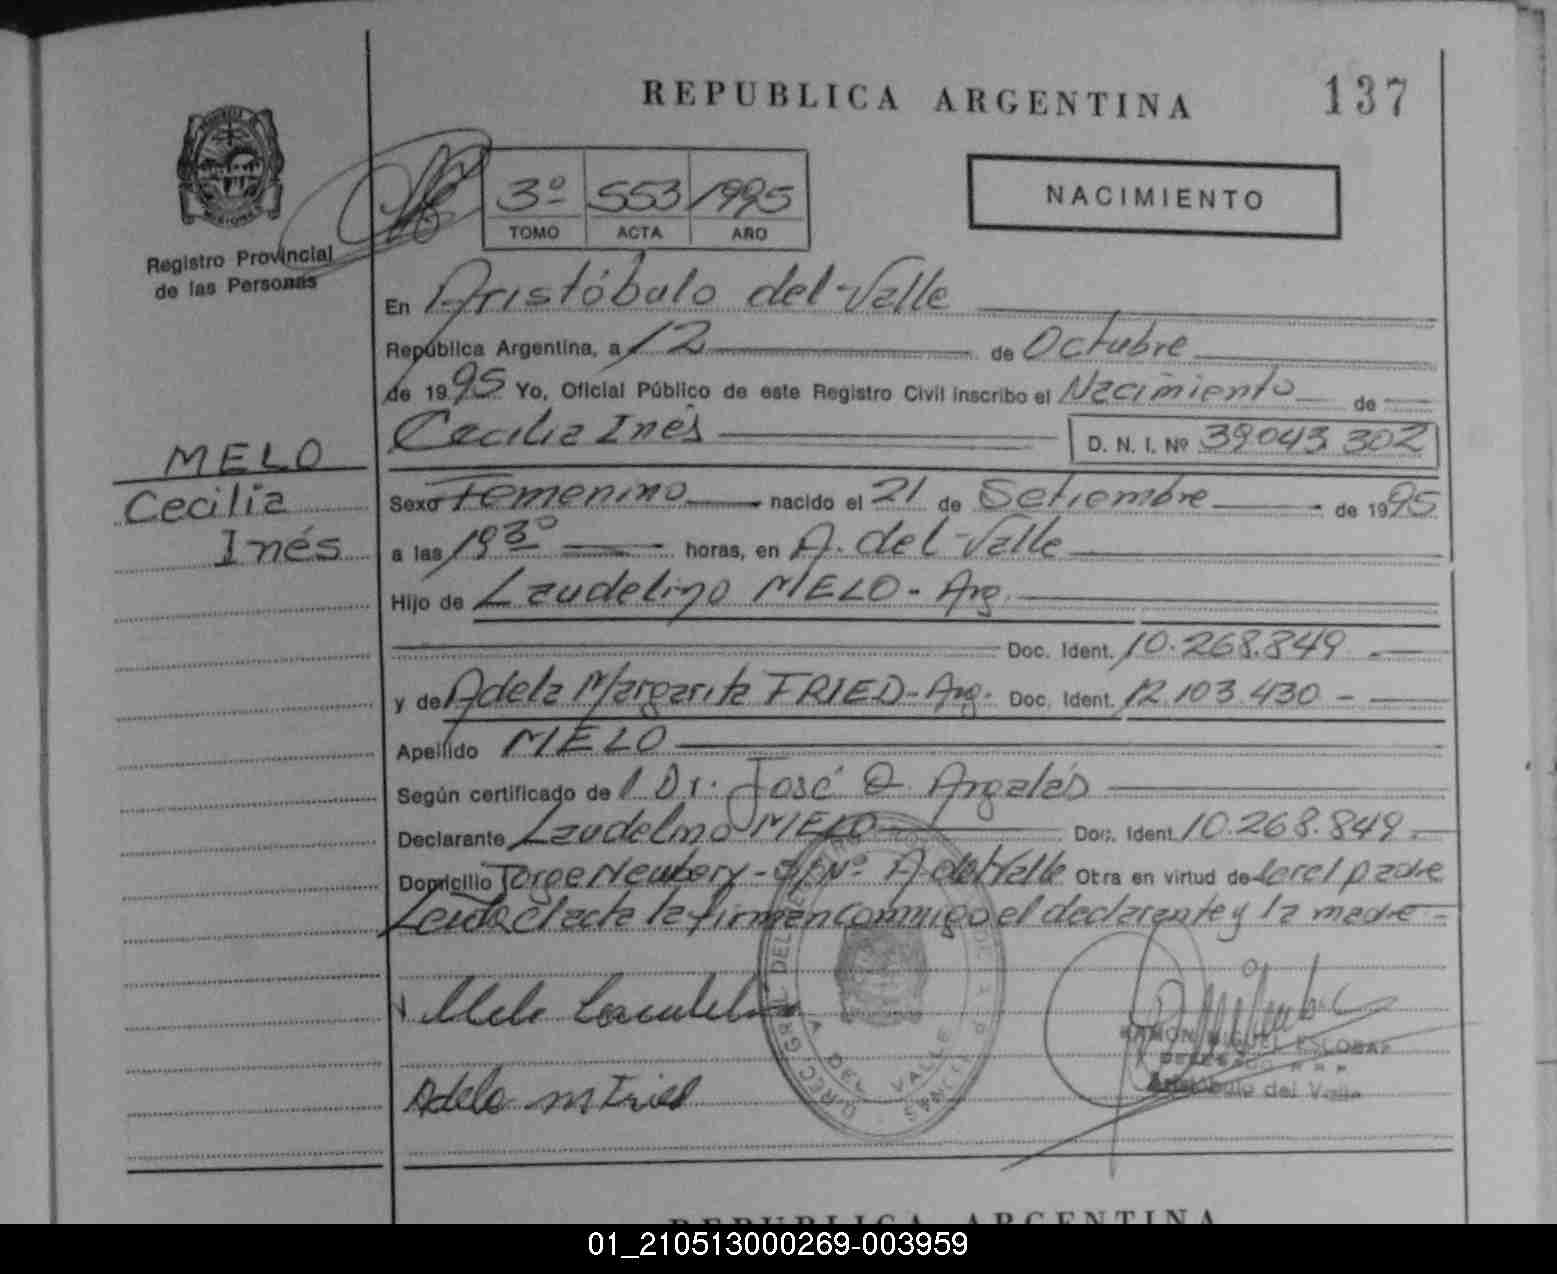 REPUBLICA ARGENTINA
137
3º 553 1995
TOMO ACTA AÑO
NACIMIENTO
MISIONES
Registro Provincial
de las Personas
En Aristóbulo del Valle
República Argentina, a 12 de Octubre
de 1995 Yo, Oficial Público de este Registro Civil inscribo el Nacimiento de
Cecilia Inés D. N. I. Nº 39043.302
MELO
Cecilia
Inés
Sexo Femenino nacido el 21 de Setiembre de 1995
a las 19 3º horas, en A. del Valle
Hijo de Laudelino MELO - Arg.
Doc. Ident. 10.268.849
y de Adela Margarita FRIED - Arg. Doc. Ident. 12.103.430 -
Apellido MELO
Según certificado de l Dr. José O. Argalás
Declarante Laudelino MELO Doc. Ident. 10.268.849
Domicilio Jorge Newbery - S/Nº A del Valle Otra en virtud de ser el padre
Leída el acta la firman conmigo el declarante y la madre -
Melo Laudelino
Adela M Fried
A. DEL VALLE
MISIONES
RAMON MIGUEL ESCOBAR
DELEGADO R.P.P.
Aristóbulo del Valle
REPUBLICA ARGENTINA
01_210513000269-003959